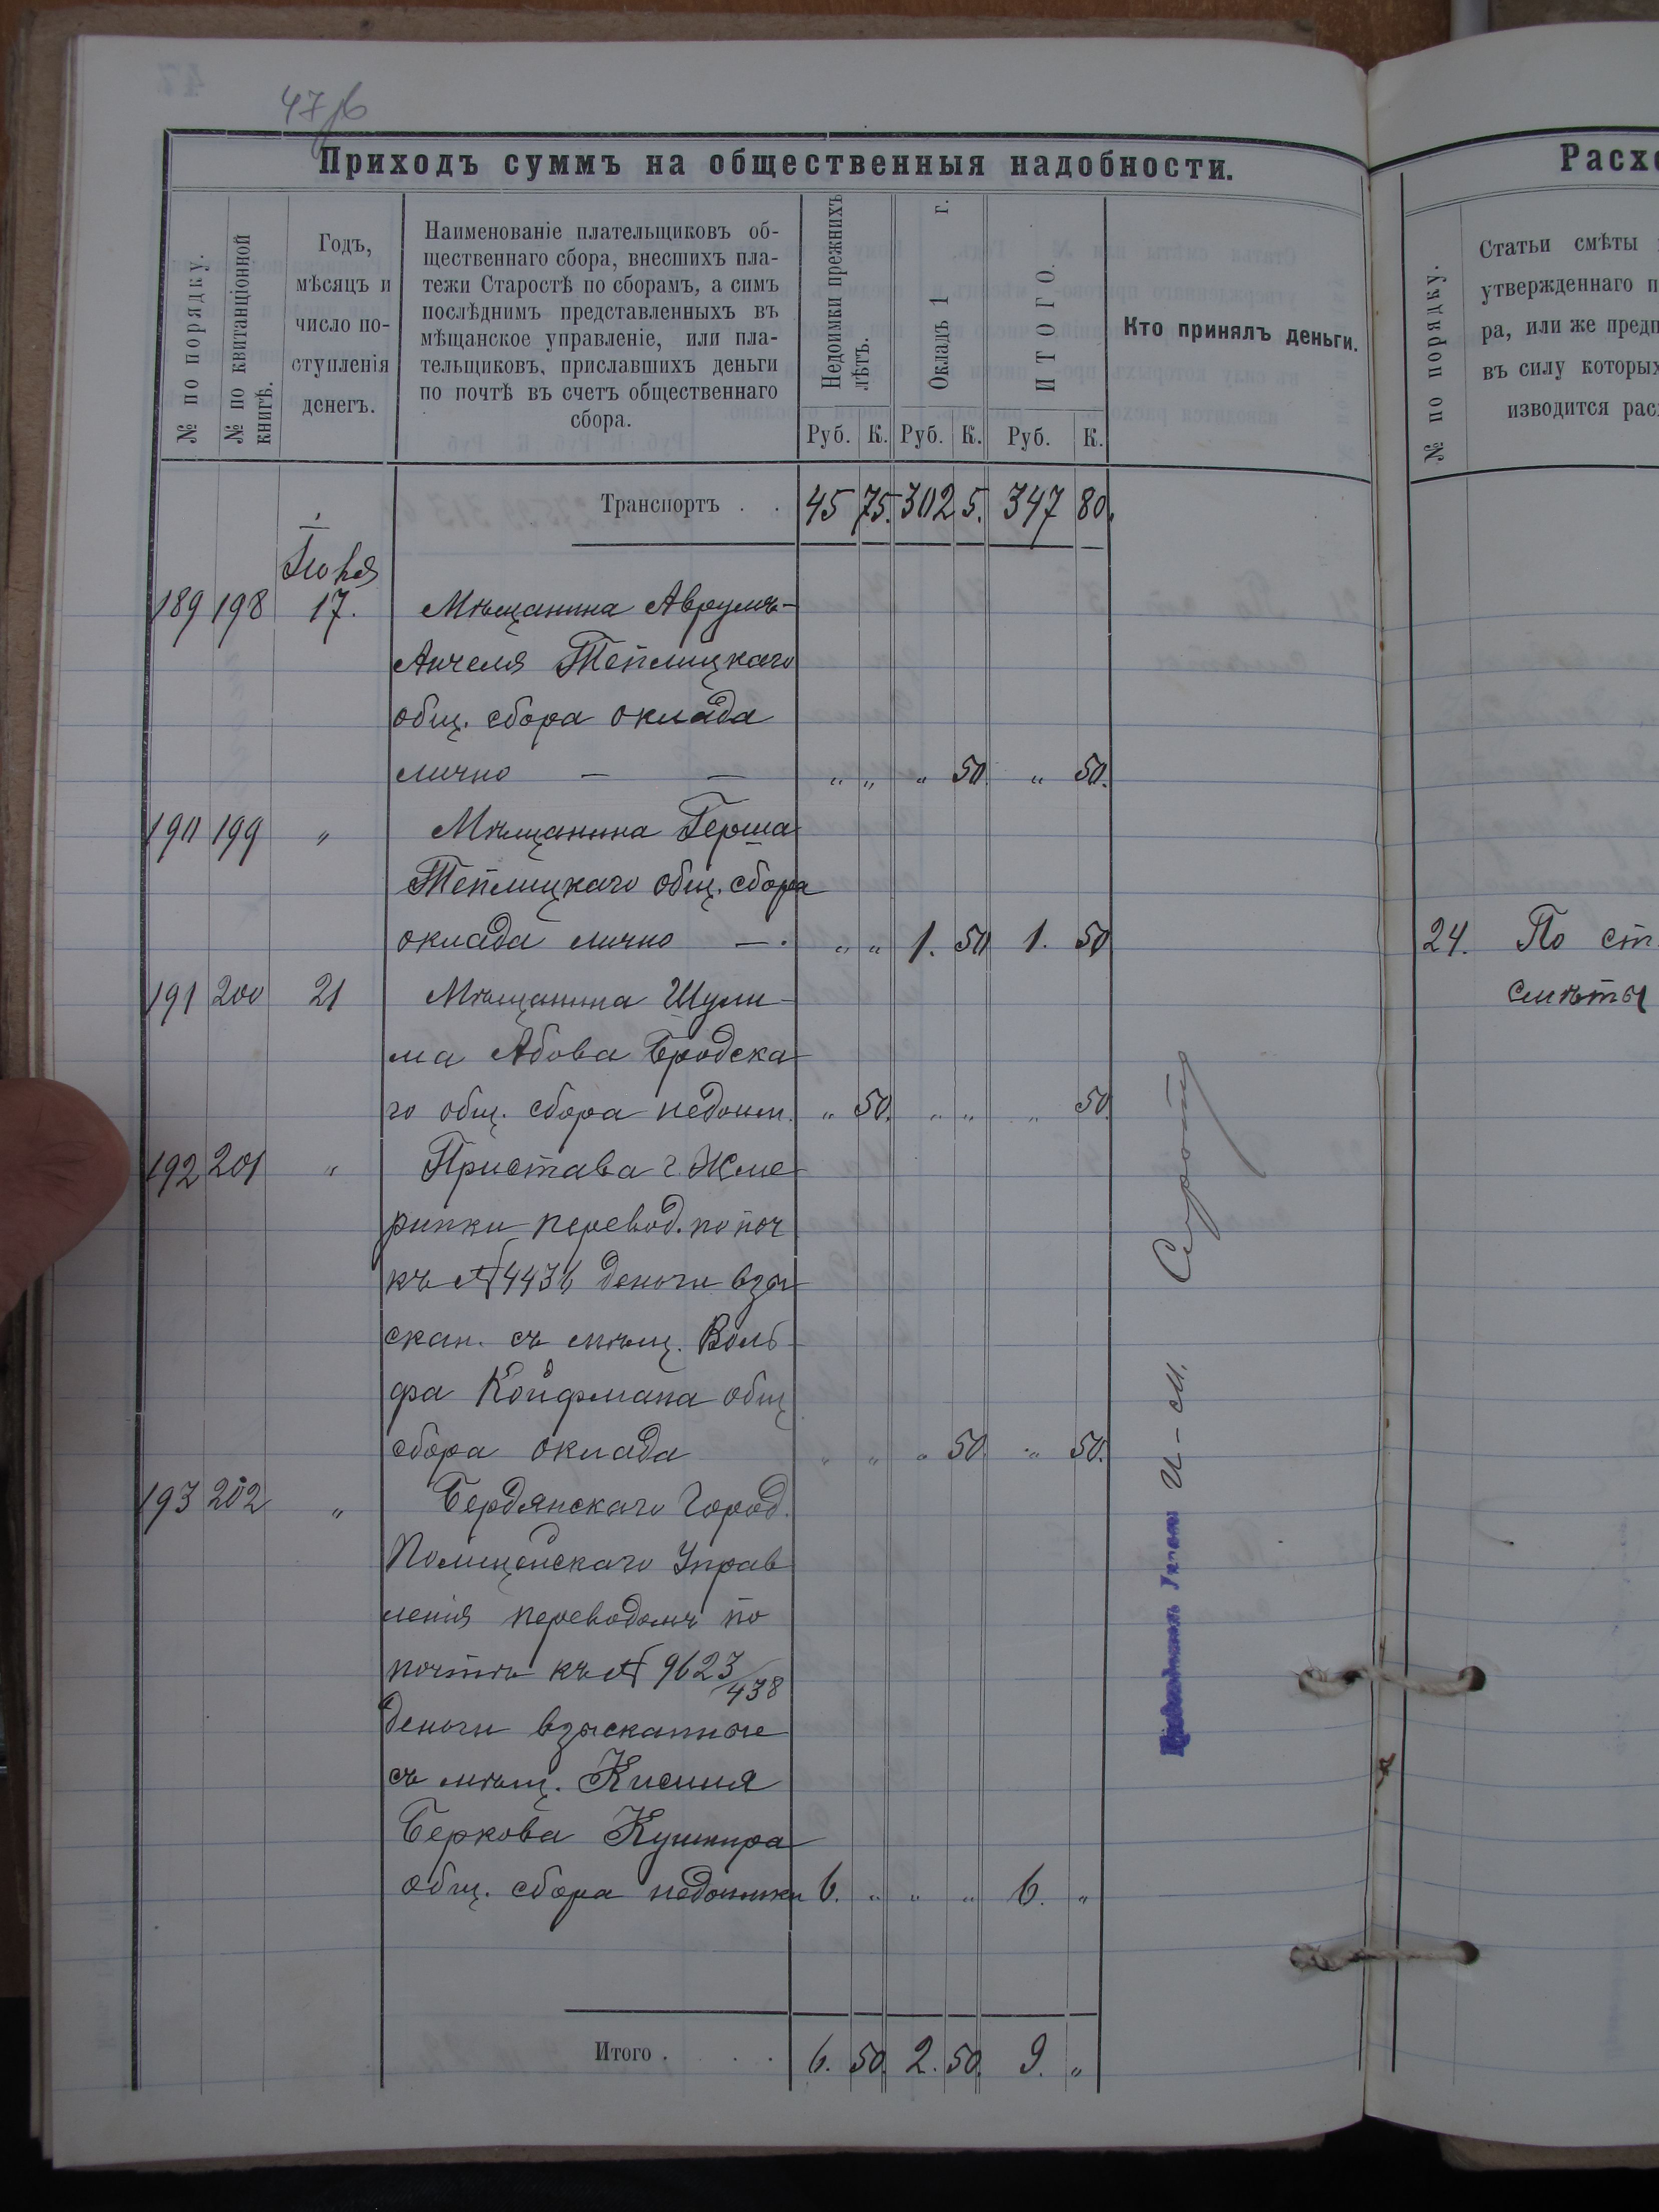 47об
Приходъ суммъ на общественныя надобности.
№ по порядку.
№ по квитанціонной книгѣ.
Годъ,
мѣсяцъ и
число по-
ступленія
денегъ.
Наименованіе плательщиковъ об-
щественнаго сбора, внесшихъ пла-
тежи Старостѣ по сборамъ, а симъ
послѣднимъ представленныхъ въ
мѣщанское управленіе, или пла-
тельщиковъ, приславшихъ деньги
по почтѣ въ счетъ общественнаго
сбора.
Недоимки прежнихъ лѣтъ.
Окладъ 1 г.
ИТОГО.
Руб. К. Руб. К. Руб. К.
Кто принялъ деньги.
Транспортъ . . 45 75. 302 5. 347 80.
Іюня
189 198 17. Мѣщанина Аврумъ-
Анчеля Теплицкаго
общ. сбора оклада
лично — — „ „ „ 50. „ 50.
190 199 „ Мѣщанина Герша
Теплицкаго общ. сбора
оклада лично — . „ „ 1. 50 1. 50
191 200 21 Мѣщанина Шули-
ма Абова Бродска-
го общ. сбора недоим. „ 50. „ „ „ 50.
192 201 „ Пристава г. Жме-
ринки перевод. по поч
къ № 4436 деньги взы-
скан. съ мѣщ. Воль-
фа Койфмана общ
сбора оклада „ „ „ 50. „ 50.
193 202 „ Бердянскаго Город.
Полицейскаго Управ
ленія переводомъ по
почтѣ къ № 9623/438
деньги взысканные
съ мѣщ. Кисиля
Беркова Кушнира
общ. сбора недоимки 6. „ „ „ 6. „
Итого . . . 6. 50. 2. 50. 9. „
И-М.
Расх
№ по порядку.
Статьи смѣты
утвержденнаго п
ра, или же предп
въ силу которых
изводится рас
24. По ст.
смѣты